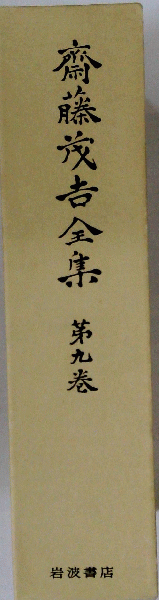 齋藤茂吉全集
第九巻
岩波書店